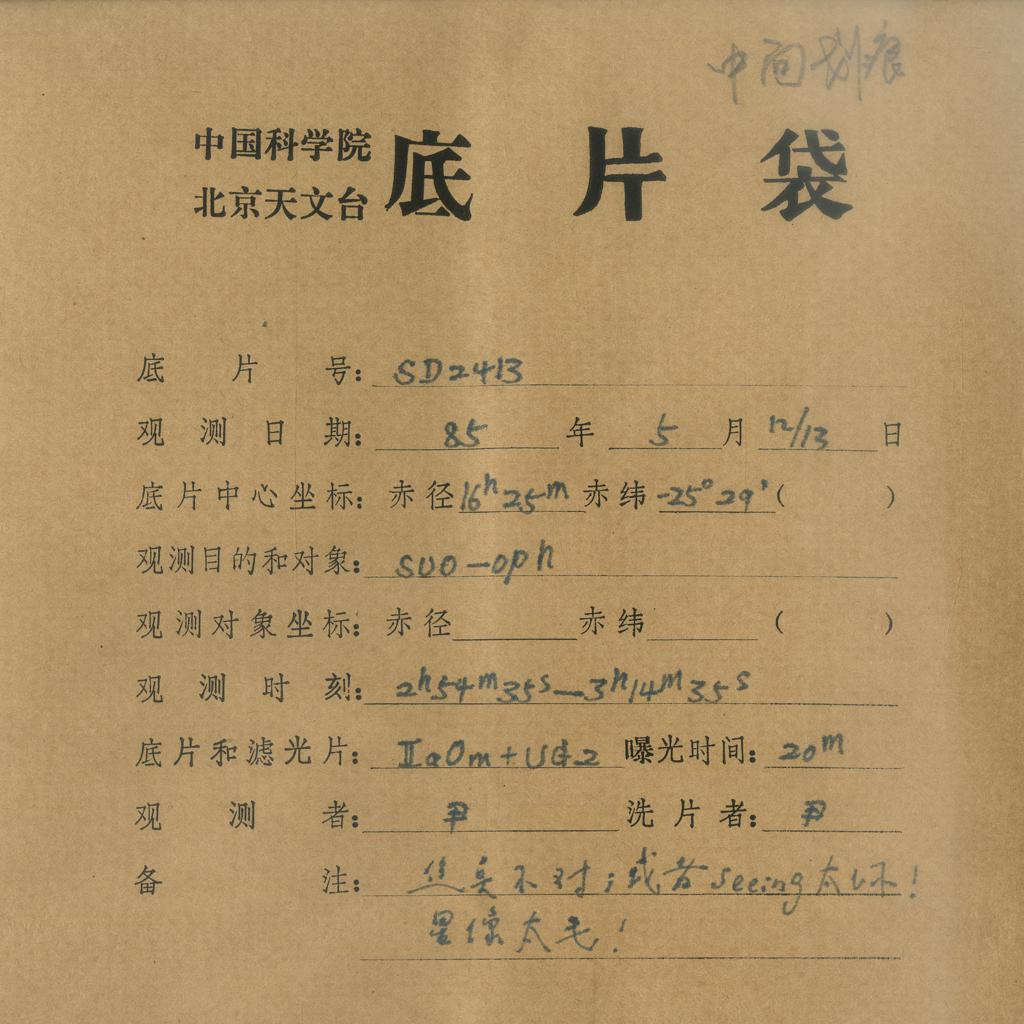 中间划痕
中国科学院
北京天文台
底片袋
底片号：SD2413
观测日期：85年5月12/13日
底片中心坐标：赤径16h25m赤纬-25°29'（ ）
观测目的和对象：SUO-oph
观测对象坐标：赤径 赤纬 （ ）
观测时刻：2h54m35s—3h14m35s
底片和滤光片：IIaOm+UG2 曝光时间：20m
观测者：尹 洗片者：尹
备注：焦点不对；或者seeing太坏！
星像太毛！